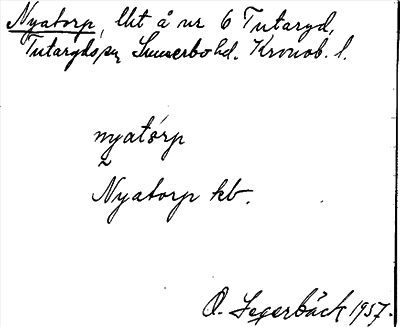 Nyatorp, lht å nr 6 Tutaryd,
Tutaryds sn Sunnerbo hd. Kronob. l.
nyatórp
~
Nyatorp kb.
O. 1957.